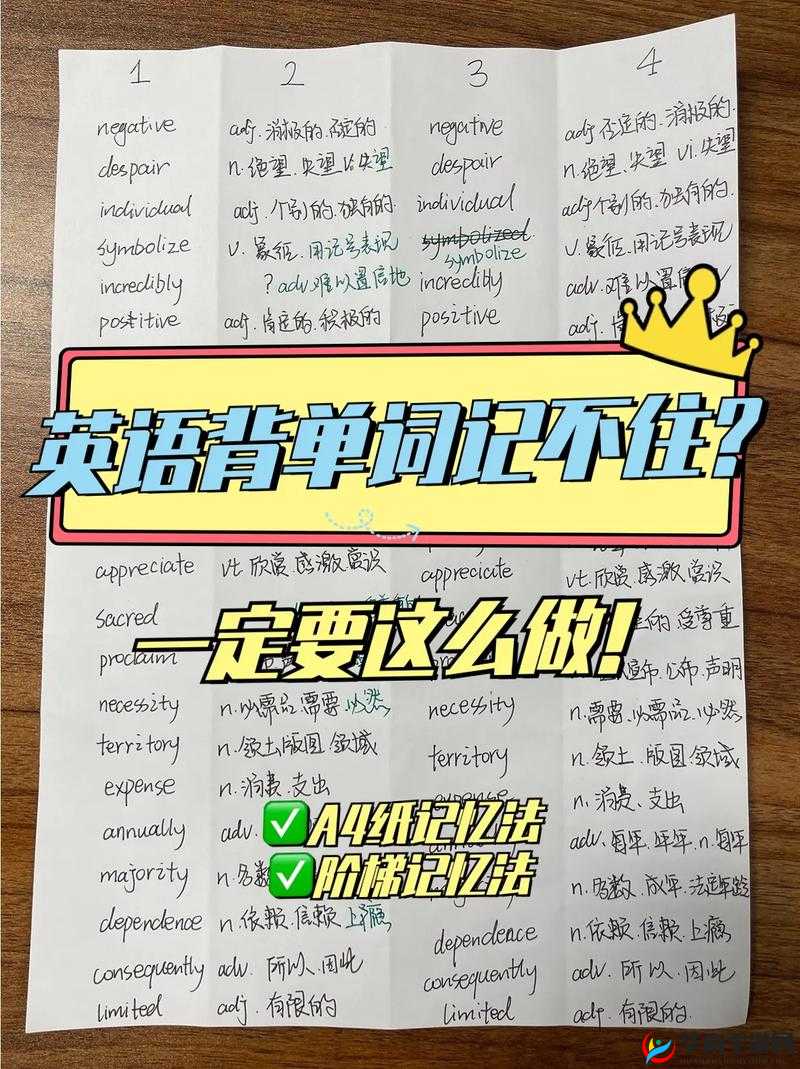 1 2 3 4
negative adj.消极的.否定的 negative adj 否定的.消极的.
despair n.绝望.失望 vi.失望 despair n.绝望.失望 vi.失望
individual adj.个别的.独有的. individual adj个别的.独有的.
symbolize v.象征.用记号表现 symbolized symbolize v.象征.用记号表现
incredibly ?adv.难以置信地 incredibly adv.难以置信
positive adj.肯定的.积极的 positive adj.
英语背单词记不住?
appreciate vt.欣赏.感激.赏识 appreciate vt.欣赏.感激.赏识
sacred 的.受尊重
一定要这么做!
proclaim 宣布.公布.声明
necessity n.必需品.需要.必然 necessity n.需要.必需品.必然
territory n.领土.版图.领域 territory n.领土.版图.领域
expense n.消费.支出 n.消费.支出
annually adv. adv.每年.年年.n.每年
✅A4纸记忆法
majority n.多数 n.多数.成年.法定年龄
✅阶梯记忆法
dependence n.依赖.信赖.上瘾 dependence n.依赖.信赖.上瘾
consequently adv.所以.因此 consequently adv.所以.因此
limited adj.有限的 limited adj.有限的.